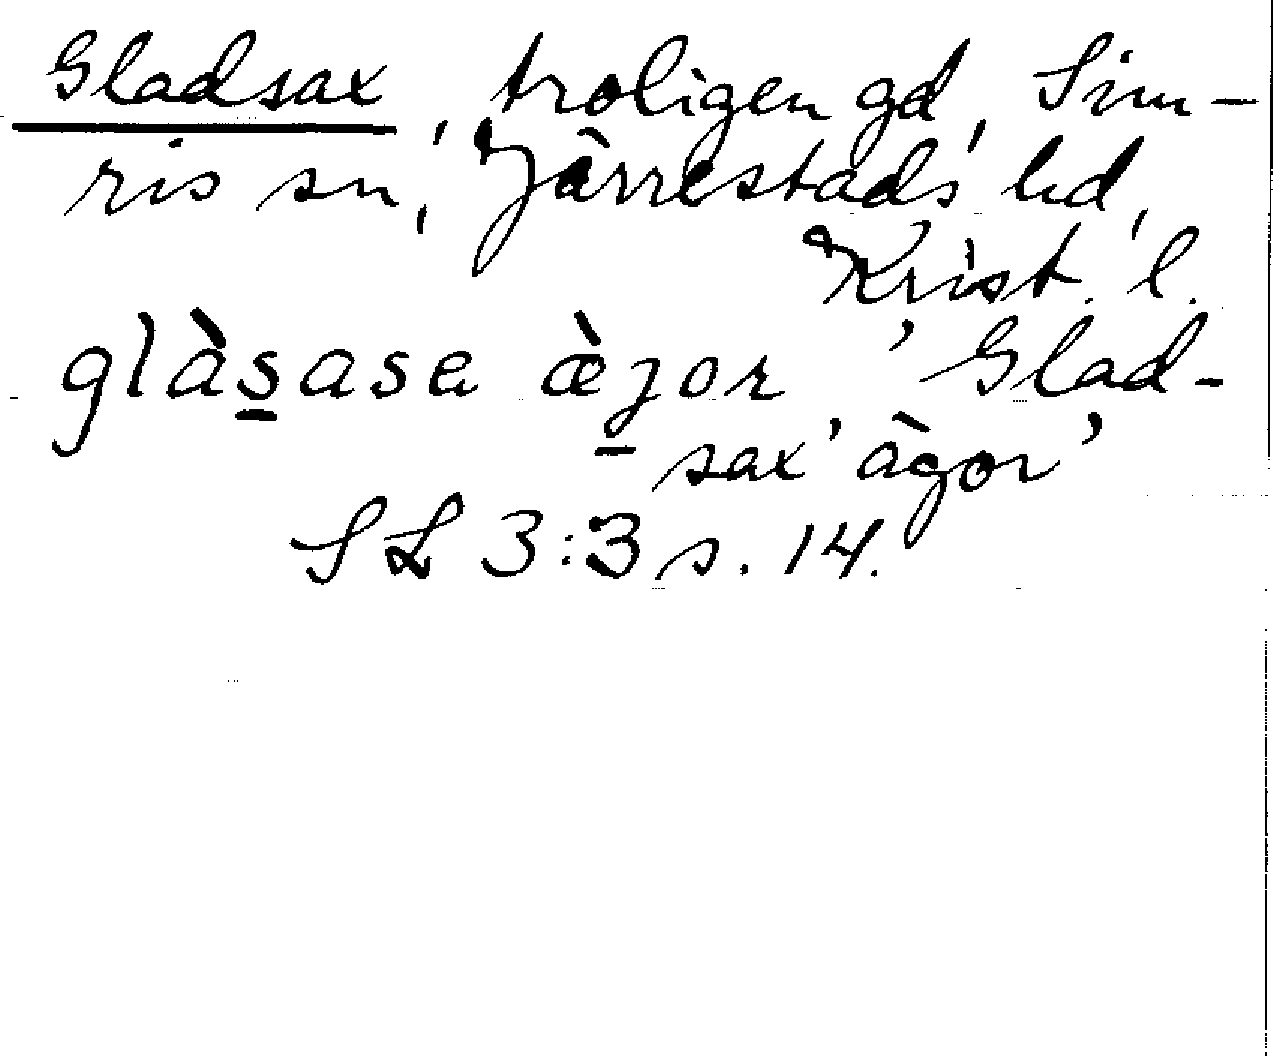 Gladsax, troligen gd, Sim-
ris sn, Järrestads hd,
Krist. l.
glàs̱ase æ̀ja̱or 'Glad-
sax' àgor'
SL 3:3 s. 14.